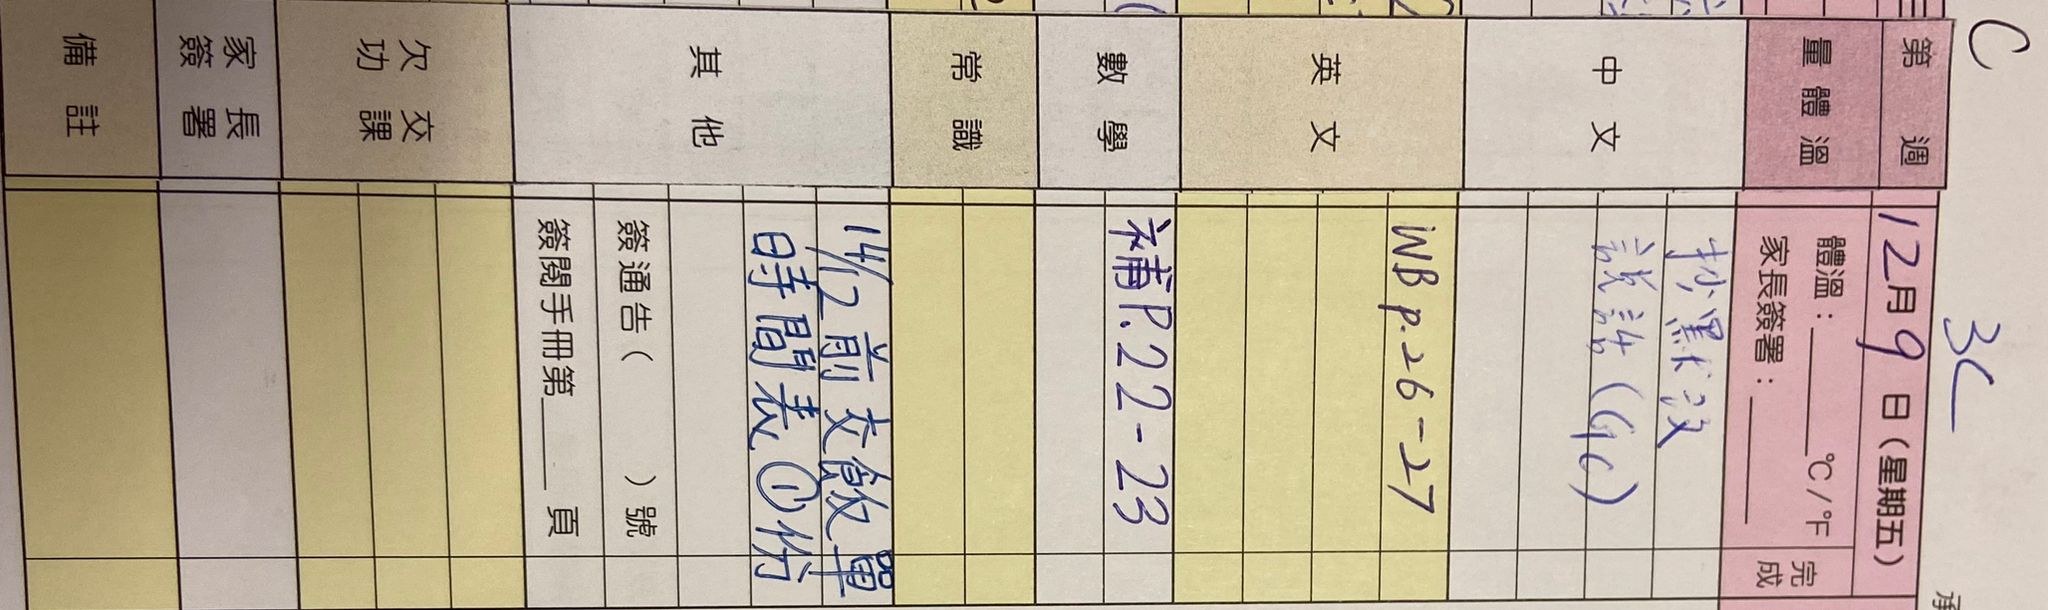 C
3C
第 週
12月9日(星期五)
量體溫
體溫:______°C/°F
家長簽署:______
完成
中文
抄默段
說話(GC)
英文
WB p.26-27
數學
補P.22-23
常識
其他
14/12前交飯單
時間表①竹
簽通告( )號
簽閱手冊第___頁
欠交功課
家長簽署
備註